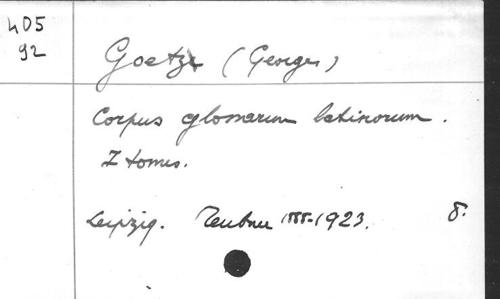 405
92
Goetz (Georges)
Corpus glossarum latinorum.
7 tomes.
Leipzig. Teubner 1888-1923. 8.